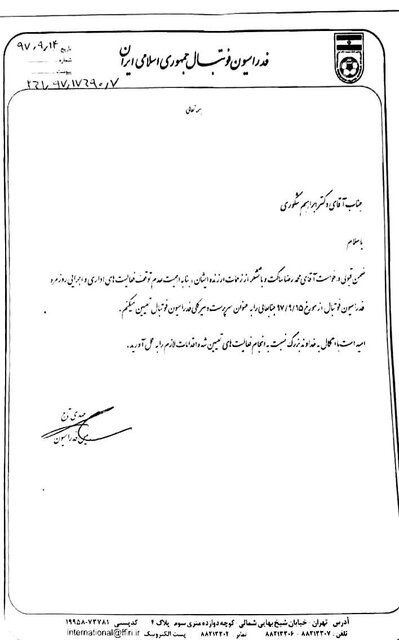 فدراسیون فوتبال جمهوری اسلامی ایران
تاریخ ۹۷،۹،۱۴
شماره
پیوست
بسمه تعالی
جناب آقای دکتر ابراهیم شکوری
باسلام
ضمن قبولی درخواست آقای محمد رضا ساکت و با تشکر از زحمات ارزنده ایشان، بنا به اهمیت عدم توقف فعالیت های اداری و اجرایی روزمره
فدراسیون فوتبال از مورخ ۹۷/۹/۱۵ جنابعالی را به عنوان سرپرست دبیر کلی فدراسیون فوتبال تعیین میکنم.
امید است با اتکال به خداوند بزرگ نسبت به انجام فعالیت های تعیین شده اقدامات لازم را به عمل آورید.
مهدی تاج
رئیس فدراسیون
آدرس تهران - خیابان شیخ بهایی شمالی کوچه دوازده متری سوم پلاک ۴ کدپستی ۱۹۹۵۸-۷۳۷۸۱
تلفن: ۷-۸۸۲۱۳۳۰۶ نمابر ۸۸۲۱۳۳۰۲ پست الکترونیک international@ffiri.ir